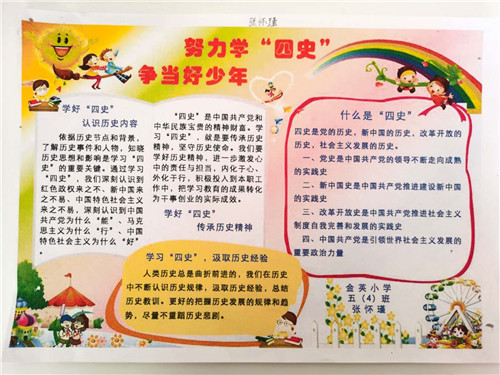 张怀瑾
努力学“四史”
争当好少年
学好“四史”
认识历史内容
依据历史节点和背景，
了解历史事件和人物，知晓
历史思想和影响是学习“四
史”的重要关键。通过学习
“四史”，我们深刻认识到
红色政权来之不、新中国来
之不易、中国特色社会主义
来之不易，深刻认识到中国
共产党为什么“能”、马克
思主义为什么“行”、中国
特色社会主义为什么“好”
“四史”是中国共产党和
中华民族宝贵的精神财富。学
习“四史”，就是要传承历史
精神，坚守历史使命。我们要
学好历史精神，进一步激发心
中的责任与担当，内化于心、
外化于行，积极投入到本职工
作中，把学习教育的成果转化
为干事创业的实际成效。
学好“四史”
传承历史精神
学习“四史”，汲取历史经验
人类历史总是曲折前进的，我们在历史
中不断认识历史规律，汲取历史经验，总结
历史教训。更好的把握历史发展的规律和趋
势，尽量不重蹈历史悲剧。
什么是“四史”
四史是党的历史，新中国的历史、改革开放的
历史，社会主义发展的历史。
一、党史是中国共产党的领导不断走向成熟
的实践史
二、新中国史是中国共产党推进建设新中国
的实践史
三、改革开放史是中国共产党推进社会主义
制度自我完善和发展的实践史
四、中国共产党是引领世界社会主义发展的
重要政治力量
金英小学
五（4）班
张怀瑾